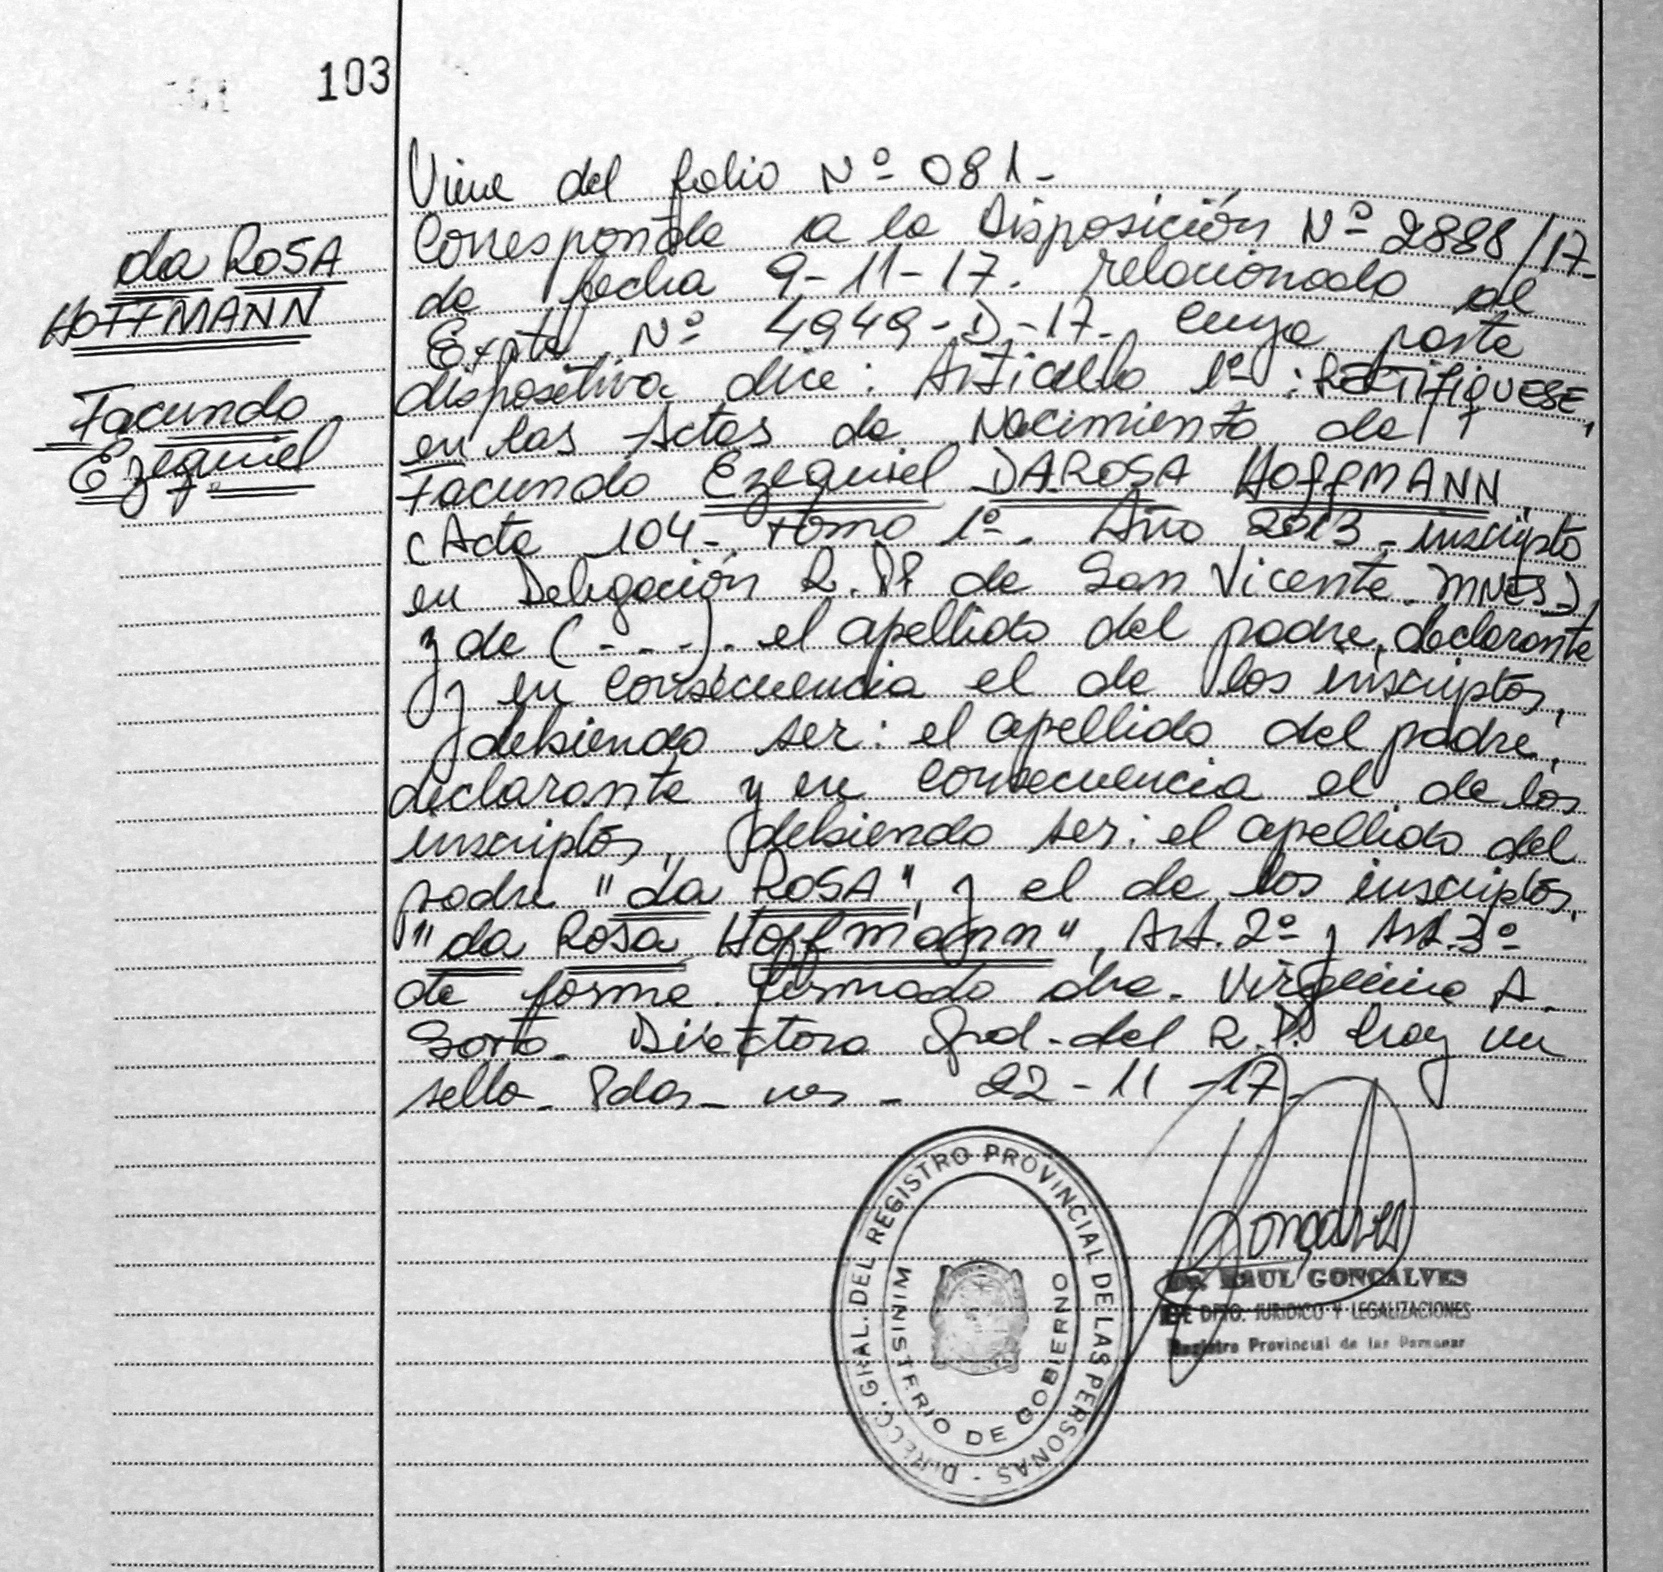 103
da ROSA
HOFFMANN
Facundo
Ezequiel
Viene del folio Nº 081-
Corresponde a la Disposición Nº 2888/17-
de fecha 9-11-17. relacionado al
Expte Nº 4949-D-17- cuya parte
dispositiva dice: Artículo 1º: RECTIFIQUESE,
en las Actas de Nacimiento de
Facundo Ezequiel DAROSA HOFFMANN
(Acta 104- tomo 1º. Año 2013 - inscripto
en Delegación R.PP de San Vicente. MNES),
y de (- - -). el apellido del padre, declarante
y en consecuencia el de los inscriptos,
debiendo ser: el apellido del padre,
declarante y en consecuencia el de los
inscriptos, debiendo ser: el apellido del
padre "da ROSA", y el de los inscriptos,
"da Rosa Hoffmann", Art. 2º y Art. 3º
de forma. firmado dra. Virginia A.
Directora Gral. del R.P. hay un
sello. Pdas - 22-11-17-
DIRECC. GRAL. DEL REGISTRO PROVINCIAL DE LAS PERSONAS -
MINISTERIO DE GOBIERNO
Gonçalves
DR. RAUL GONCALVES
JEFE DPTO. JURIDICO Y LEGALIZACIONES
Registro Provincial de las Personas